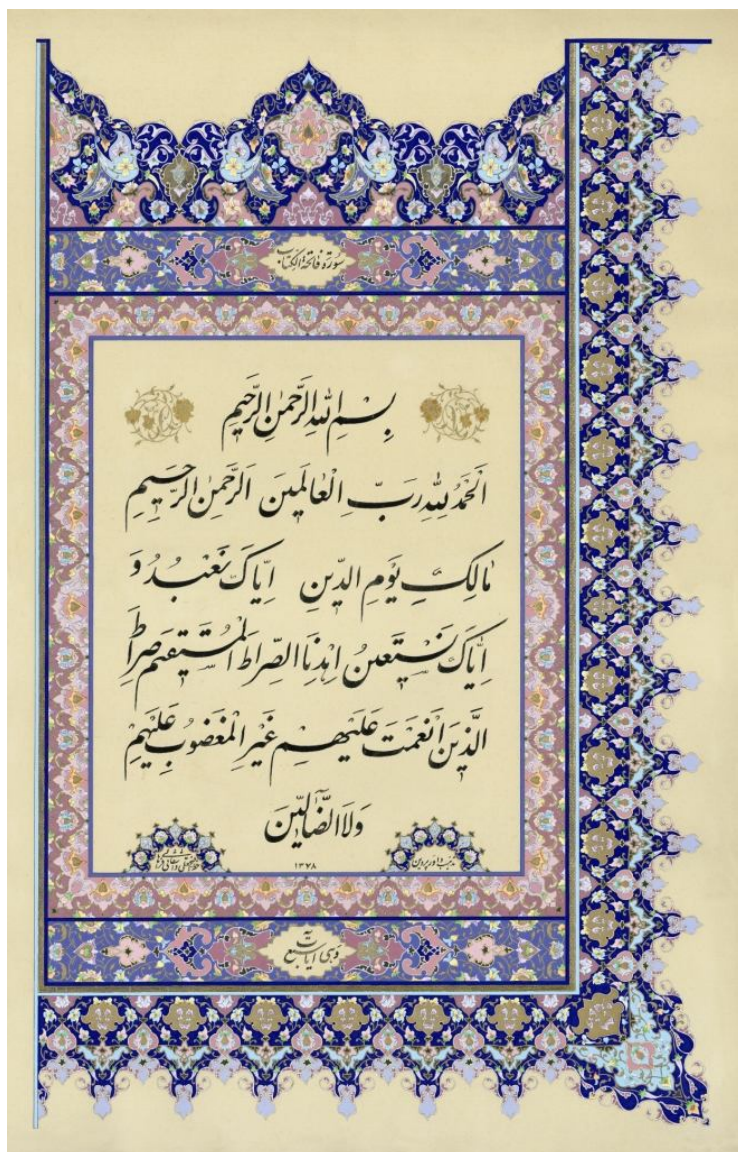 سورة فاتحة الكتاب
بِسْمِ اللهِ الرَّحْمٰنِ الرَّحِيمِ
اَلْحَمْدُ لِلّٰهِ رَبِّ الْعَالَمِينَ اَلرَّحْمٰنِ الرَّحِيمِ
مَالِكِ يَوْمِ الدِّينِ اِيَّاكَ نَعْبُدُ وَ
اِيَّاكَ نَسْتَعِينُ اِهْدِنَا الصِّرَاطَ الْمُسْتَقِيمَ صِرَاطَ
الَّذِينَ اَنْعَمْتَ عَلَيْهِمْ غَيْرِ الْمَغْضُوبِ عَلَيْهِمْ
وَلَا الضَّآلِّينَ
۱۳۷۸
وهی سبع آیات